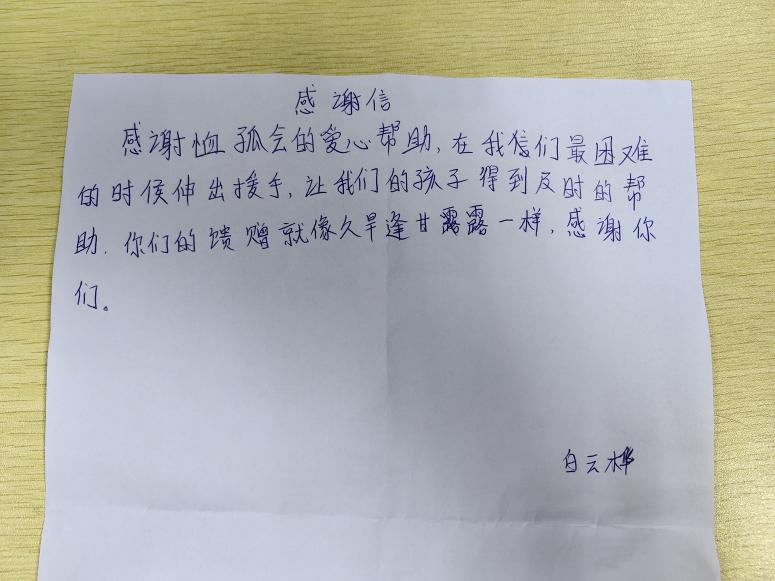 感谢信
感谢恤孤会的爱心帮助，在我们最困难
的时候伸出援手，让我们的孩子得到及时的帮
助.你们的馈赠就像久旱逢甘露一样，感谢你
们。
白云桦